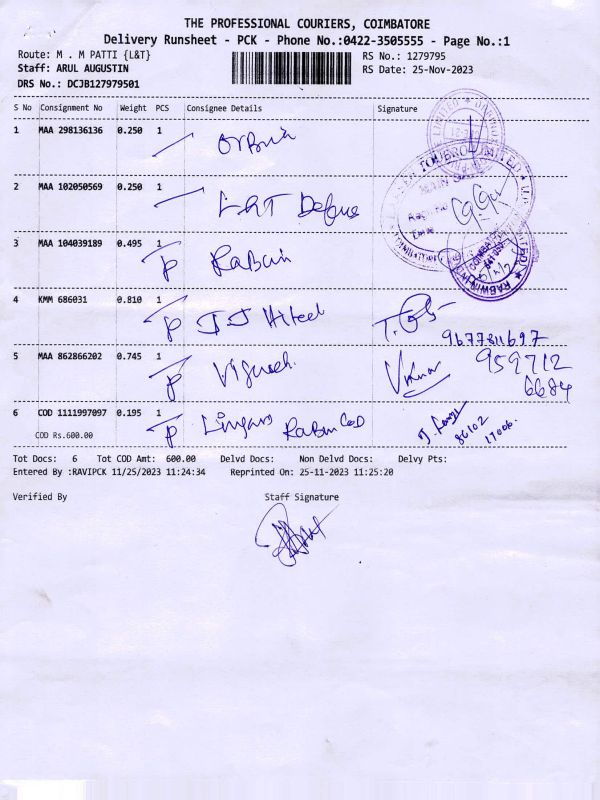 THE PROFESSIONAL COURIERS, COIMBATORE
Delivery Runsheet - PCK - Phone No.:0422-3505555 - Page No.:1
Route: M . M PATTI {L&T}
RS No.: 1279795
Staff: ARUL AUGUSTIN
RS Date: 25-Nov-2023
DRS No.: DCJB127979501
S No Consignment No Weight PCS Consignee Details Signature
1 MAA 298136136 0.250 1
2 MAA 102050569 0.250 1 L&T Defence
3 MAA 104039189 0.495 1 P
4 KMM 686031 0.810 1 P
9677811697
5 MAA 862866202 0.745 1 P Vignesh.
959712
6684
6 COD 1111997097 0.195 1 P COD
86102
17006.
COD Rs.600.00
Tot Docs: 6 Tot COD Amt: 600.00 Delvd Docs: Non Delvd Docs: Delvy Pts:
Entered By :RAVIPCK 11/25/2023 11:24:34 Reprinted On: 25-11-2023 11:25:20
Verified By Staff Signature